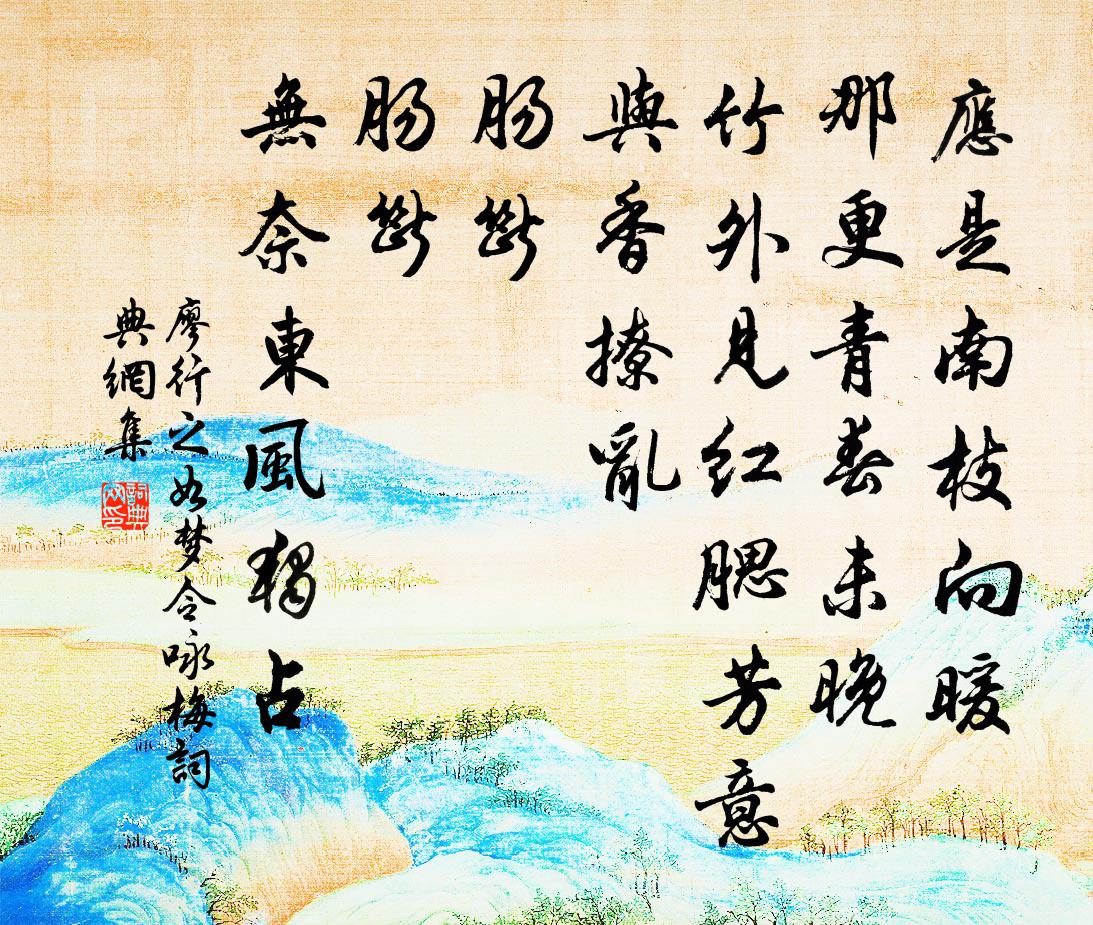 應是南枝向暖
那更青春未晚
竹外見紅腮芳意
與香撩亂
腸斷
腸斷
無奈東風獨占
廖行之如梦令咏梅詞
典網集
詞典